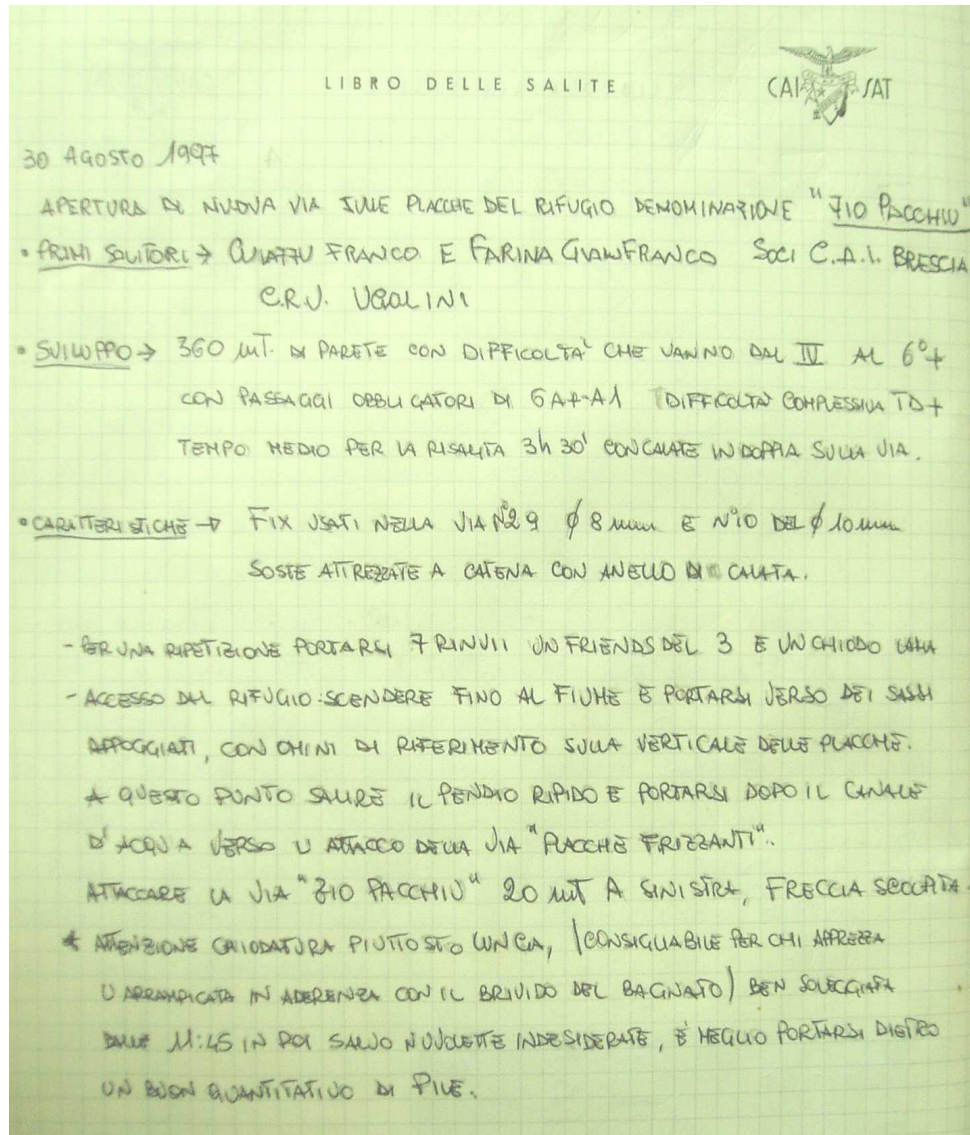 LIBRO DELLE SALITE
CAI SAT
30 AGOSTO 1997
APERTURA DI NUOVA VIA SULLE PLACCHE DEL RIFUGIO DENOMINAZIONE "ZIO PACCHIU"
• PRIMI SALITORI → FRANCO E FARINA GIANFRANCO SOCI C.A.I. BRESCIA
UGOLINI
• SVILUPPO → 360 MT. DI PARETE CON DIFFICOLTA' CHE VANNO DAL IV AL 6°+
CON PASSAGGI OBBLIGATORI DI 6A+-A1 DIFFICOLTA' COMPLESSIVA TD+
TEMPO MEDIO PER LA RISALITA 3h 30' CON CALATE IN DOPPIA SULLA VIA.
• CARATTERISTICHE → FIX USATI NELLA VIA N°29 Ø 8 mm E N°10 DEL Ø 10 mm
SOSTE ATTREZZATE A CATENA CON ANELLO DI CALATA.
- PER UNA RIPETIZIONE PORTARSI 7 RINVII UN FRIENDS DEL 3 E UN CHIODO LAMA
- ACCESSO DAL RIFUGIO: SCENDERE FINO AL FIUME E PORTARSI VERSO DEI SASSI
APPOGGIATI, CON OMINI DI RIFERIMENTO SULLA VERTICALE DELLE PLACCHE.
A QUESTO PUNTO SALIRE IL PENDIO RIPIDO E PORTARSI DOPO IL CANALE
D'ACQUA VERSO L'ATTACCO DELLA VIA "PLACCHE FRIZZANTI".
ATTACCARE LA VIA "ZIO PACCHIU" 20 MT A SINISTRA, FRECCIA SCOLPITA.
* ATTENZIONE CHIODATURA PIUTTOSTO LUNGA, (CONSIGLIABILE PER CHI APPREZZA
L'ARRAMPICATA IN ADERENZA CON IL BRIVIDO DEL BAGNATO) BEN SOLEGGIATA
DALLE 11:45 IN POI SALVO NUVOLETTE INDESIDERATE, É MEGLIO PORTARSI DIETRO
UN BUON QUANTITATIVO DI PILE.